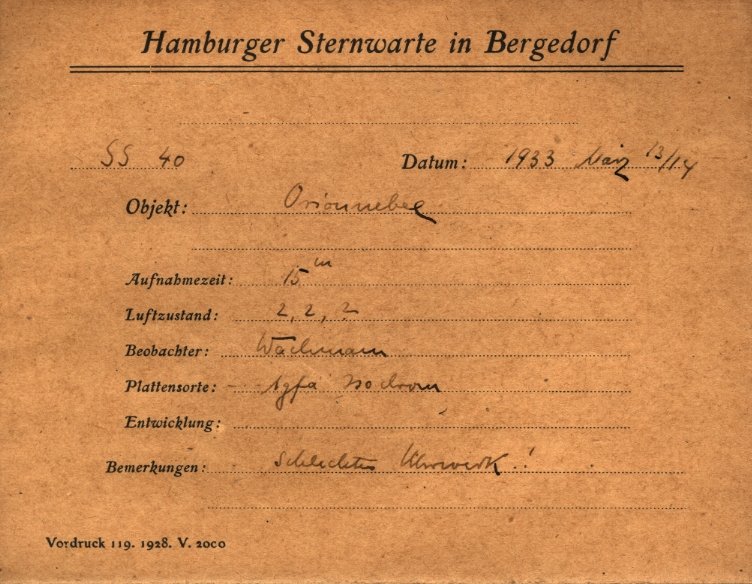 Hamburger Sternwarte in Bergedorf
SS 40 Datum: 1933 März 13/14
Objekt: Orionnebel
Aufnahmezeit: 15 m
Luftzustand: 2, 2, 2
Beobachter: Wachmann
Plattensorte: Agfa Isochrom
Entwicklung:
Bemerkungen: Schlechtes Uhrwerk!
Vordruck 119. 1928. V. 2000